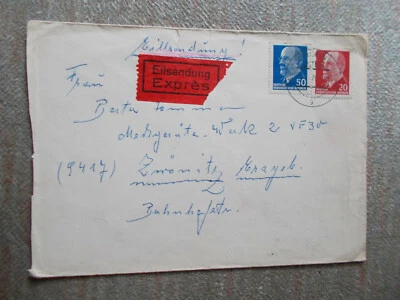 Eilsendung!
Eilsendung
Exprès
50
20
Frau
Berta
Meßgeräte-Werk 2 VF30
(9417) Zwönitz Erzgeb.
Bahnhofstr.